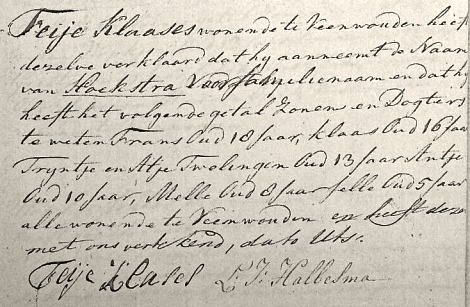 Feije Klaases wonende te Veenwouden heeft
dezelve verklaard dat hy aanneemt de Naam
van Hoekstra voor familienaam en dat hy
heeft het volgende getal Zonens en Dogters
te weten Frans Oud 18 Jaar, Klaas Oud 16 Jaar
Tryntje en Atje Twelingen Oud 13 Jaar Antje
Oud 10 Jaar, Melle Oud 8 Jaar Jelle Oud 5 Jaar
alle wonende te Veenwouden en heeft deze
met ons vertekend, dato Uts.
Feije Klases E F Halbesma